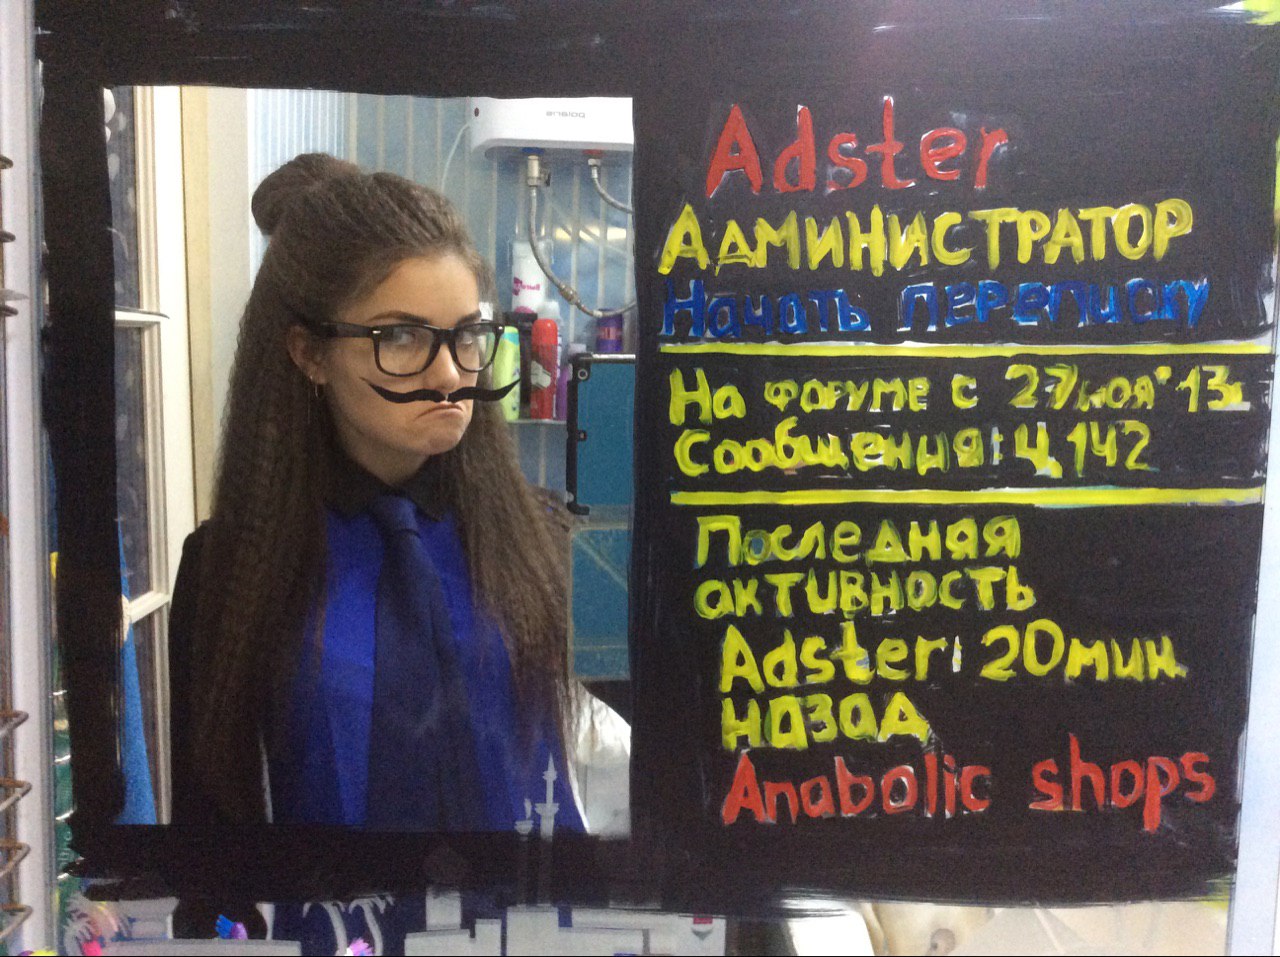 Adster
Администратор
Начать переписку
На форуме с 27 ноя 13г.
Сообщения: 4,142
Последняя
активность
Adster: 20 мин.
назад
Anabolic shops